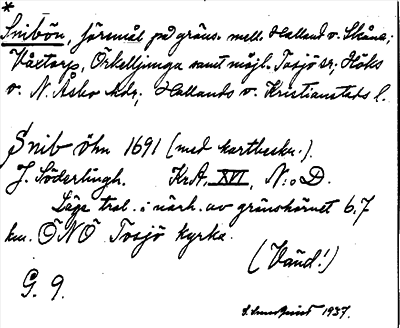 *
Snibön, föremål på gräns. mell. Halland o. Skåne;
Våxtorp, Örkelljunga samt möjl. Tosjö sr; Höks
o. N. Åsbo hdr; Hallands o. Kristianstads l.
Snib öhn 1691 (med kartbeskr.).
J. Söderlingh. KrA, XVI, N:o D.
Läge trol. i närh. av gränshörnet 6.7
km. ÖNÖ Tosjö kyrka.
(Vänd!)
G. 9.
1937.